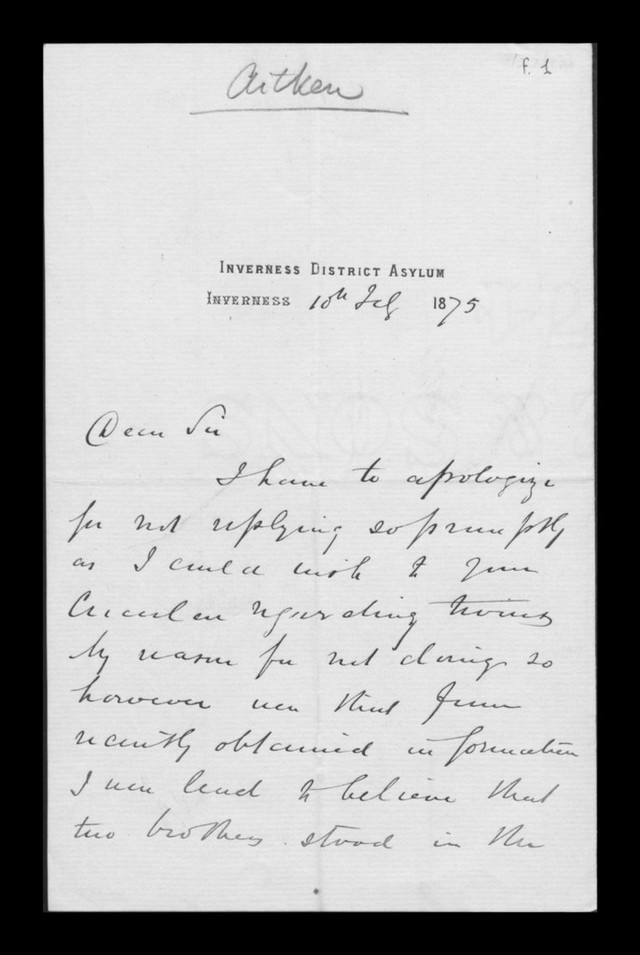 f. 1
Aitken
INVERNESS DISTRICT ASYLUM
INVERNESS 10th Feby 1875
Dear Sir
I have to apologize
for not replying so promptly
as I could wish to your
Circular regarding twins
My reason for not doing so
however was that from
recently obtained information
I was lead to believe that
two brothers stood in the